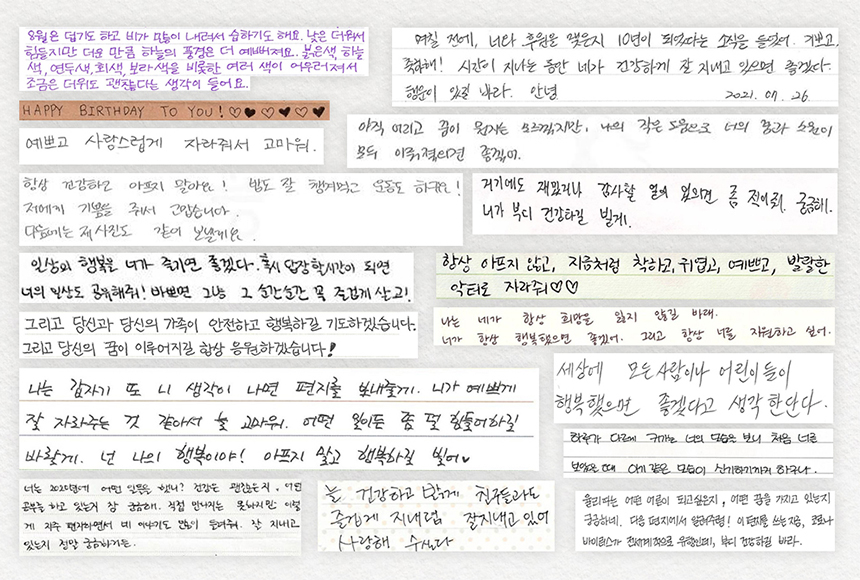 8월은 덥기도 하고 비가 많이 내려서 습하기도 해요. 낮은 더워서
힘들지만 더운 만큼 하늘의 풍경은 더 예뻐져요. 붉은색, 하늘
색, 연두색, 회색, 보라색을 비롯한 여러 색이 어우러져서
조금은 더워도 괜찮다는 생각이 들어요.
HAPPY BIRTHDAY TO YOU! ♡♥♡♥♡♥
예쁘고 사랑스럽게 자라줘서 고마워.
항상 건강하고 아프지 말아요! 밥도 잘 챙겨먹고 운동도 하구요!
저에게 기쁨을 줘서 고맙습니다.
다음에는 제 사진도 같이 보낼게요.
일상의 행복을 너가 즐기면 좋겠다. 혹시 답장할 시간이 되면
너의 일상도 공유해줘! 바쁘면 그냥 그 순간순간 꼭 즐겁게 살고!
그리고 당신과 당신의 가족이 안전하고 행복하길 기도하겠습니다.
그리고 당신의 꿈이 이루어지길 항상 응원하겠습니다!
며칠 전에, 너와 후원을 맺은지 10년이 되었다는 소식을 들었어. 기쁘고,
축하해! 시간이 지나는 동안 네가 건강하게 잘 지내고 있으면 좋겠다.
행운이 있길 바라. 안녕 2021. 07. 26.
아직 어리고 꿈이 뭔지는 모르겠지만, 나의 작은 도움으로 너의 꿈과 소원이
모두 이뤄졌으면 좋겠어.
거기에도 재밌거나 감사할 일이 있으면 좀 적어줘. 궁금해.
니가 부디 건강하길 빌게.
항상 아프지 않고, 지금처럼 착하고, 귀엽고, 예쁘고, 발랄한
악터로 자라줘♡♡
나는 네가 항상 희망을 잃지 않길 바래.
너가 항상 행복했으면 좋겠어. 그리고 항상 너를 지원하고 싶어.
나는 갑자기 또 니 생각이 나면 편지를 보내줄게. 니가 예쁘게
잘 자라주는 것 같아서 늘 고마워. 어떤 일이든 좀 덜 힘들어하길
바랄게. 넌 나의 행복이야! 아프지 말고 행복하길 빌어♥
세상에 모든 사람이나 어린이들이
행복했으면 좋겠다고 생각한단다.
하루가 다르게 커가는 너의 모습을 보니 처음 너를
보았을 때 아기 같은 모습이 신기하기까지 하구나.
너는 2020년에 어떤 일들을 했니? 건강은 괜찮은지, 어떤
공부를 하고 있는지 참 궁금해. 직접 만나지는 못하지만 이렇
게 자주 편지하면서 네 이야기도 많이 들려줘. 잘 지내고
있는지 정말 궁금하거든.
늘 건강하고 밝게 친구들과도
즐겁게 지내렴 잘 지내고 있어
사랑해
율리파는 어떤 어른이 되고 싶은지, 어떤 꿈을 가지고 있는지
궁금하네. 다음 편지에서 알려주렴! 이 편지를 쓰는 지금, 코로나
바이러스가 전세계적으로 유행인데, 부디 건강하길 바라.